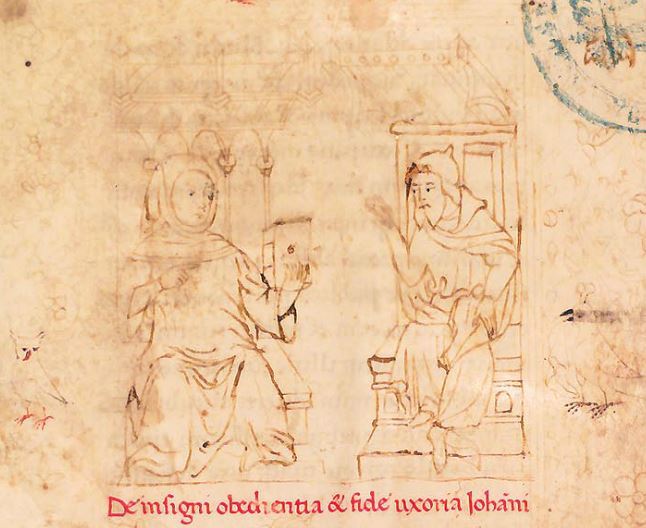 De insigni obedientia & fide uxoria Johāni